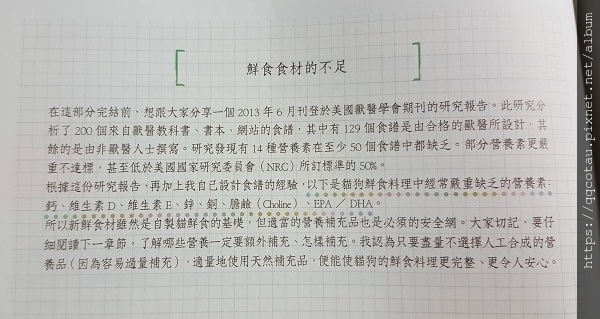 鮮食食材的不足
在這部分完結前，想跟大家分享一個2013年6月刊登於美國獸醫學會期刊的研究報告。此研究分
析了200個來自獸醫教科書、書本、網站的食譜，其中有129個食譜是由合格的獸醫所設計，其
餘的是由非獸醫人士撰寫。研究發現有14種營養素在至少50個食譜中都缺乏。部分營養素更嚴
重不達標，甚至低於美國國家研究委員會（NRC）所訂標準的50%。
根據這份研究報告，再加上我自己設計食譜的經驗，以下是貓狗鮮食料理中經常嚴重缺乏的營養素：
鈣、維生素D、維生素E、鋅、銅、膽鹼（Choline）、EPA／DHA。
所以新鮮食材雖然是自製貓鮮食的基礎，但適當的營養補充品也是必須的安全網。大家切記，要仔
細閱讀下一章節，了解哪些營養一定要額外補充、怎樣補充。我認為只要盡量不選擇人工合成的營
養品（因為容易過量補充），適量地使用天然補充品，便能使貓狗的鮮食料理更完整、更令人安心。
https://qqcotau.pixnet.net/album